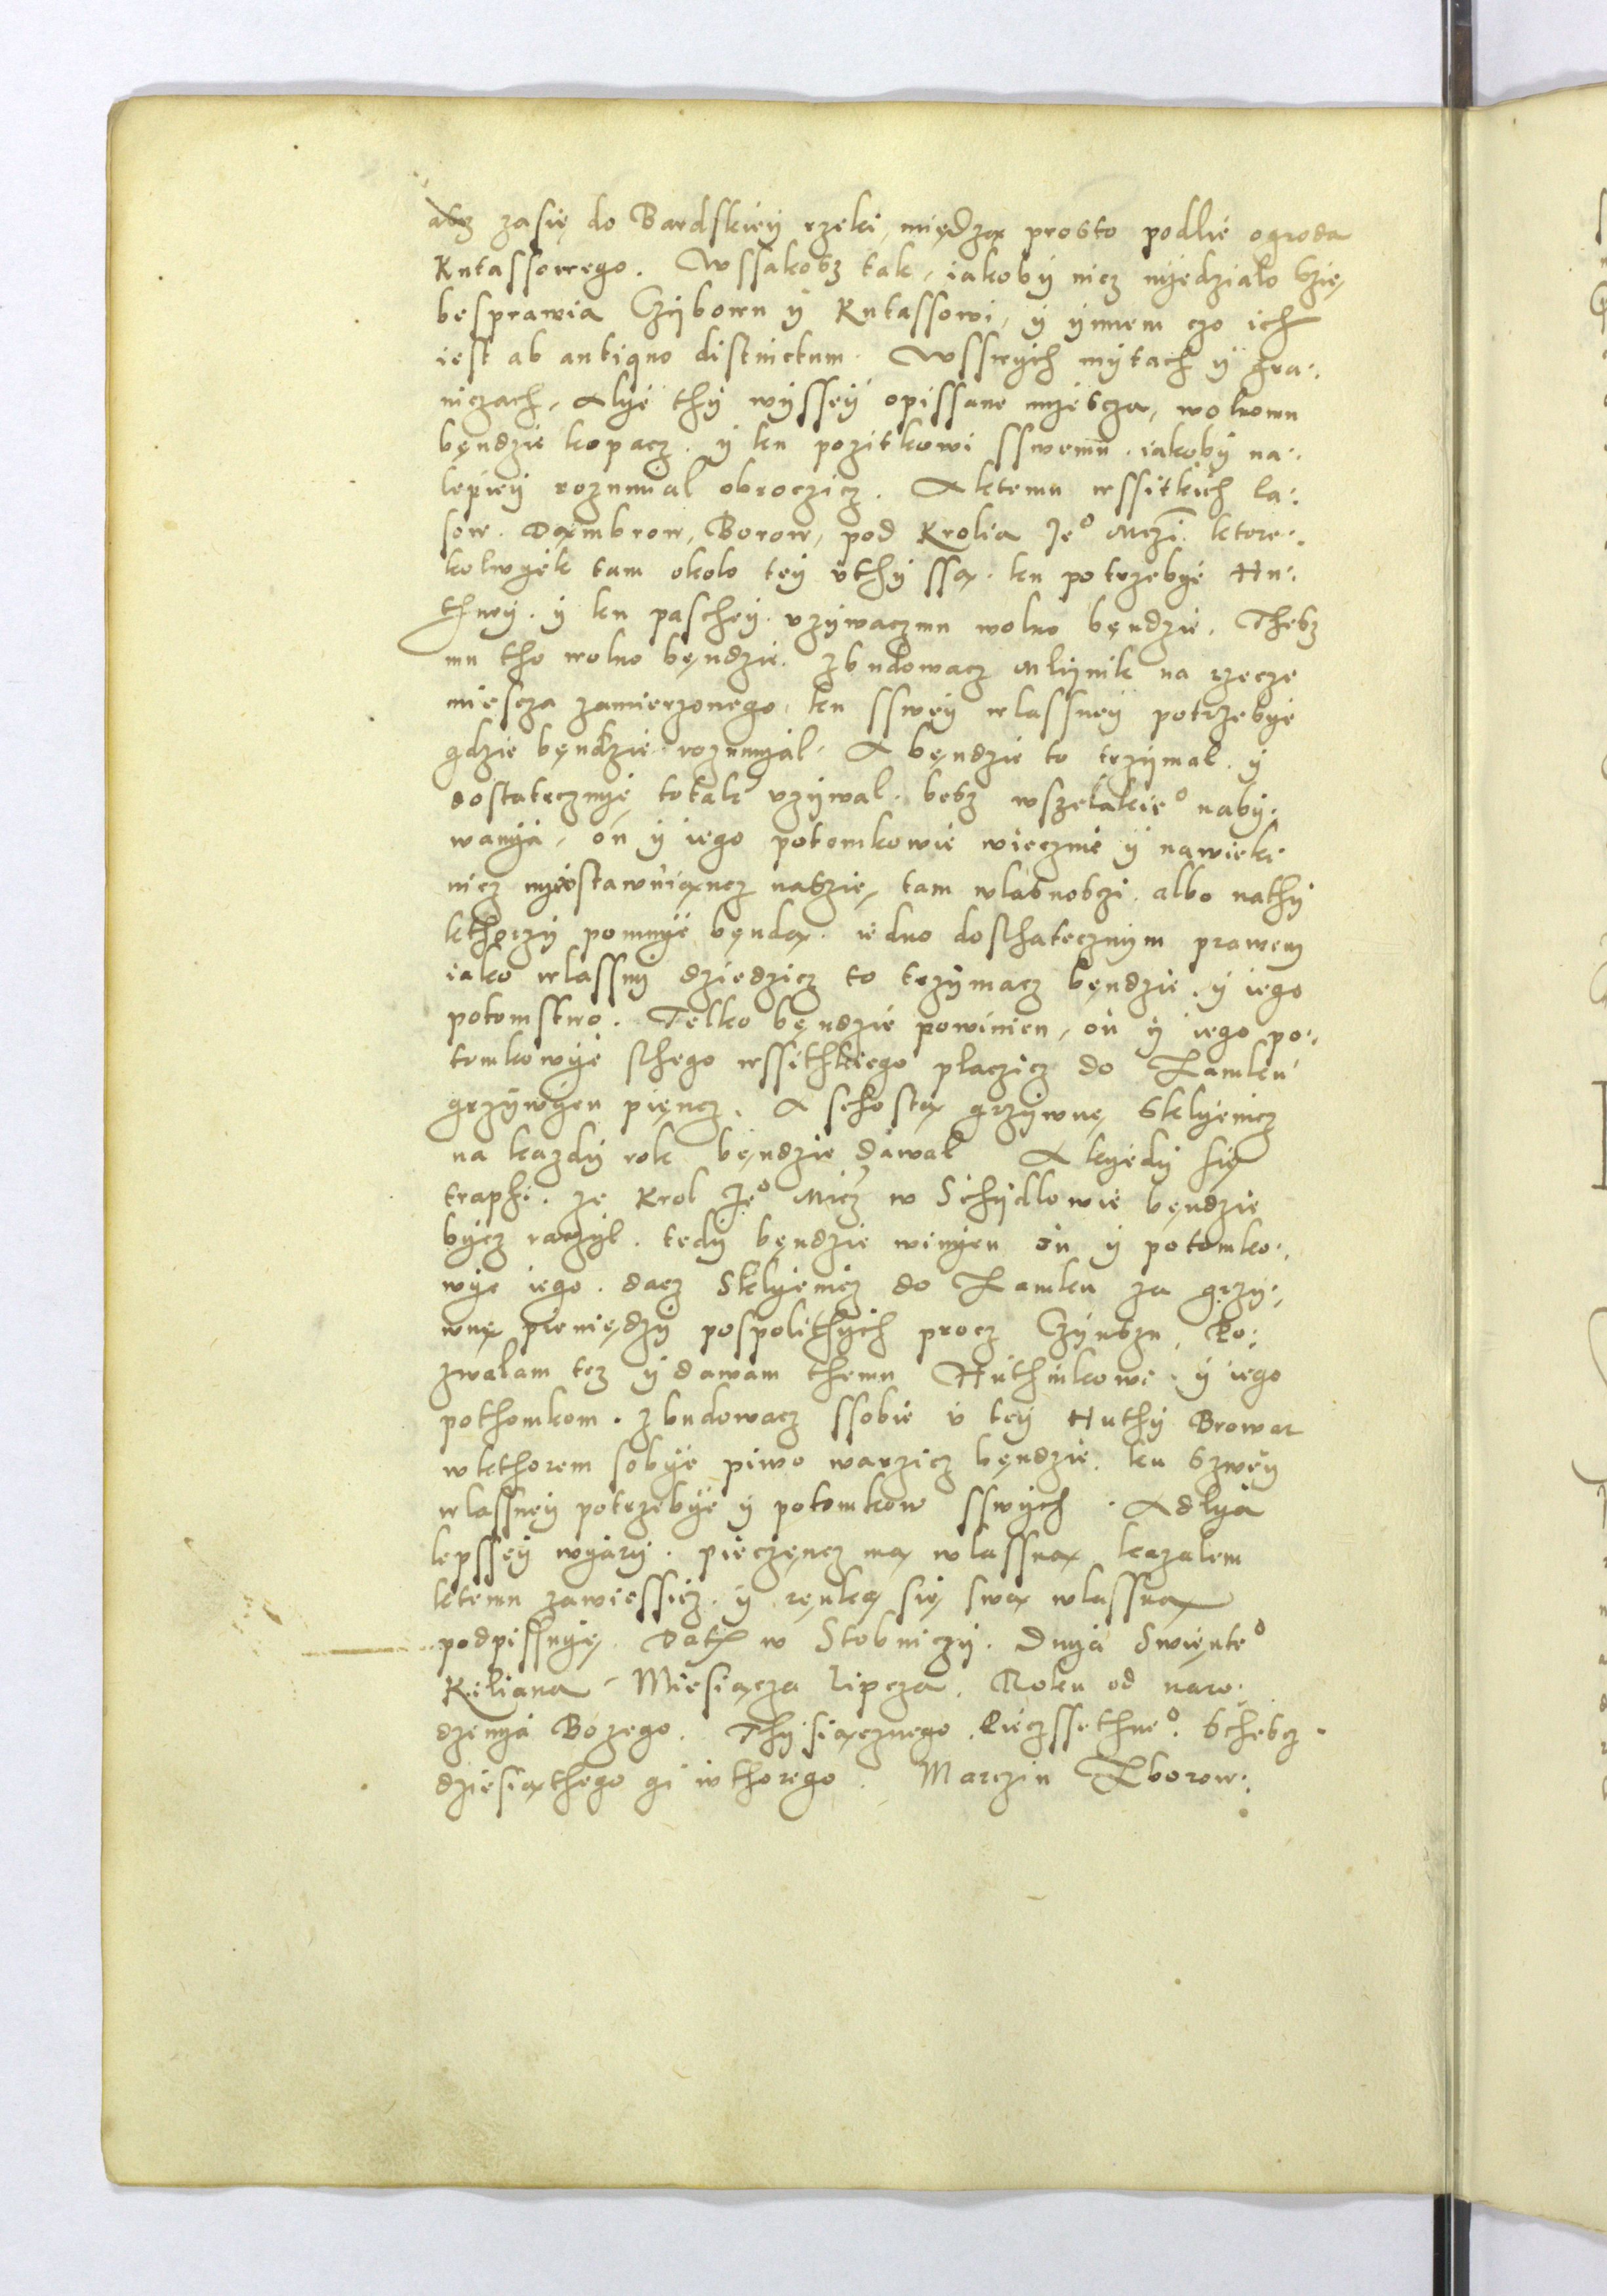 asz zasię do Bardskiey rzeki, między prosto podlie ogroda
Kutassowego. Wssakosz tak, iakoby nicz nyedziało szię
besprawia Czyborn y Kutassowi, y ynnem czo ich
iest ab antiquo distinctum. Wsswych mytach y gra:
niczach, Alye thy wyssey opissane myescza, wolnomu
bęndzie kopacz. y ku pozitkowi sswemu. iakoby na:
lepiey rozumial obroczicz. A ktemu wssitkich la:
sow. Dambrow, Borow, pod Krolia Je° Mczi. ktore:
kolwyek tam okolo tey vthy ssą. ku potrzebye Hu:
thney. y ku paschey. vzywaczmu wolno bęndzie. Thesz
mu tho wolno bęndzie. zbudowacz Mlijnik na rzecze
miescza zamierzonego, ku sswey wlassney potrzebye
gdzie bęndzie rozumyal. A bęndzie to trzymal. y
dostatecznye, totak vzywal. besz wszelakie° naby:
wanya, on y iego potomkowie wiecznie y nawieki
nicz nyeostawuiąncz nadzię, tam wlasnosczi. albo nathy
kthorzy pomnye będą. iedno dosthatecznym prawem
iako wlassny dziedzicz to trzymacz bęndzie. y iego
potomstwo. Telko bęndzie powinien, on y iego po:
tomkowye sthego wssithkiego placzicz do Zamku
grzywyen pięncz. A schostą grzywnę Sklyenicz
na kazdy rok bęndzie dawal A kyedy się
traphi. ze Krol Je° Micz w Schydlowie bęndzie
bycz raczyl. tedy bęndzie winyen on y potomko:
wye iego. dacz Sklyenicz do Zamku za grzy:
wnę pieniędzy pospolithych procz Czynszu, Po:
zwalam tez y dawam themu Huthnikowi. y iego
pothomkom. zbudowacz ssobie v tey Huthy Browar
wkthorem sobye piwo warzicz bęndzie. ku szwey
wlassney potrzebye y potomkow sswych. Adlya
lepssey wyary. pieczęncz mą wlassną kazalem
ktemu zawiessicz. y ręnką się swą wlassną
podpissuyę. Dat w Stobniczy. Dnya Swięnte°
Kiliana Miesiącza Lipcza. Roku od naro:
dzenya Bozego. Thysiącznego. Pieczssethne°. Schesz
dziesiąthego gi wthorego. Marczin Zborow: